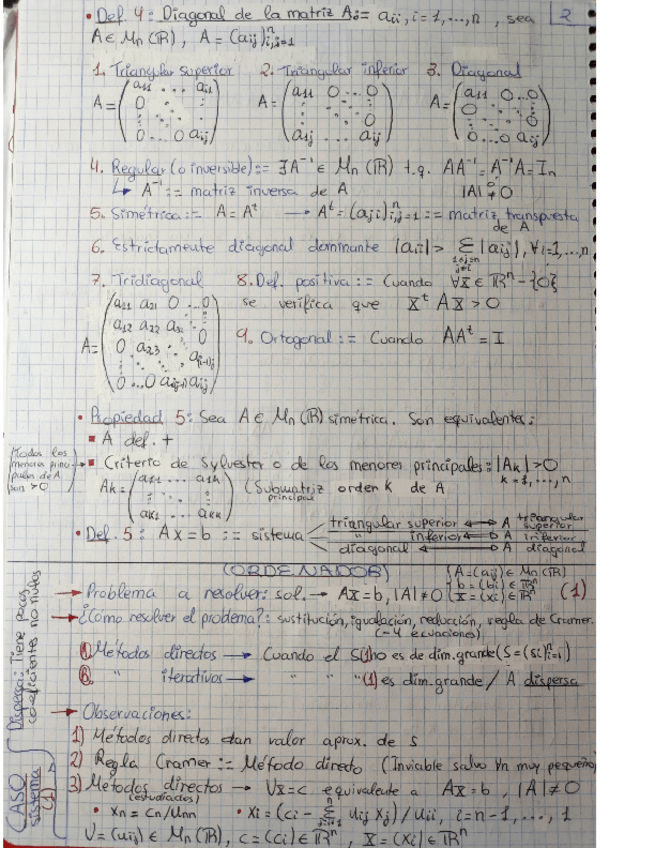 • Def. 4: Diagonal de la matriz A := aii, i=1,...,n, sea
2
A ∈ Mn(ℝ), A = (aij)ⁿi,j=1
1. Triangular superior 2. Triangular inferior 3. Diagonal
A = ( a11 ... ai1 / 0 ⋱ ⋮ / ⋮ ⋱ ⋮ / 0 ... 0 aij ) A = ( a11 0 ... 0 / ⋮ ⋱ ⋮ / ⋮ ⋱ 0 / a1j ... aij ) A = ( a11 0 ... 0 / 0 ⋱ ⋮ / ⋮ ⋱ 0 / 0 ... 0 aij )
4. Regular (o inversible) := ∃A⁻¹ ∈ Mn(ℝ) t.q. AA⁻¹ = A⁻¹A = In
↳ A⁻¹ := matriz inversa de A |A| ≠ 0
5. Simétrica := A = Aᵗ → Aᵗ = (aji)ⁿi,j=1 := matriz transpuesta
de A
6. Estrictamente diagonal dominante |aii| > Σ |aij|, ∀i=1,...,n
1≤j≤n
j≠i
7. Tridiagonal 8. Def. positiva := Cuando ∀x ∈ ℝⁿ - {0}
se verifica que xᵗ A x > 0
A = ( a11 a21 0 ... 0 / a12 a22 a32 ⋱ ⋮ / 0 a23 ⋱ ⋱ 0 / ⋮ ⋱ ⋱ a(i-1)j / 0 ... 0 ai(j-1) aij )
9. Ortogonal := Cuando AAᵗ = I
• Propiedad 5: Sea A ∈ Mn(ℝ) simétrica. Son equivalentes:
▪ A def. +
Modos los
menores princi-
pales de A
son > 0
▪ Criterio de Sylvester o de los menores principales: |Ak| > 0
k = 1,...,n
Ak = ( a11 ... a1k / ⋮ ⋱ ⋮ / ak1 ... akk ) (Submatriz orden k de A
principal
• Def. 5: Ax = b := sistema
triangular superior ↔ A triangular superior
" inferior ↔ A " inferior
diagonal ↔ A diagonal
(ORDENADOR)
→ Problema a resolver: sol. → Ax = b, |A| ≠ 0 { A = (aij) ∈ Mn(ℝ) / b = (bi) ∈ ℝⁿ / x = (xi) ∈ ℝⁿ (1)
→ ¿Cómo resolver el problema?: sustitución, igualación, reducción, regla de Cramer.
(-4 ecuaciones)
A. Métodos directos → Cuando el S(1) no es de dim. grande (S = (si)ⁿi=1)
B. " iterativos → " " "(1) es dim. grande / A dispersa
Dispersa: Tiene pocos
coeficientes no nulos
→ Observaciones:
1) Métodos directos dan valor aprox. de s
2) Regla Cramer := Método directo (Inviable salvo ∀n muy pequeño)
3) Métodos directos → Ux = c equivalente a Ax = b, |A| ≠ 0
(estudiados)
• xn = cn/unn • xi = (ci - Σⁿj=i+1 uij xj) / uii, i = n-1, ..., 1
U = (uij) ∈ Mn(ℝ), c = (ci) ∈ ℝⁿ, x = (xi) ∈ ℝⁿ
CASO
sistema
(1)